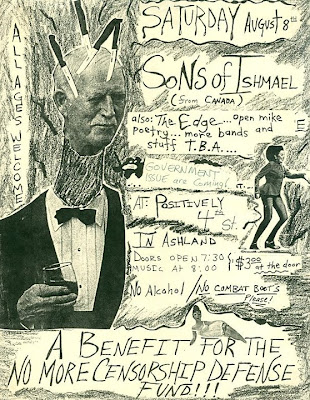 ALL AGES WELCOME
SATURDAY AUGUST 8th
SONS of ISHMAEL
(from CANADA)
also: The Edge...open mike
poetry... more bands and
stuff T.B.A....
GOVERNMENT
ISSUE are coming!
AT: POSITIVELY
4th St.
IN ASHLAND
DOORS OPEN 7:30
MUSIC AT 8:00
$3.00
at the door
NO ALCOHOL / NO COMBAT BOOTS
Please!
A BENEFIT FOR THE
NO MORE CENSORSHIP DEFENSE
FUND!!!